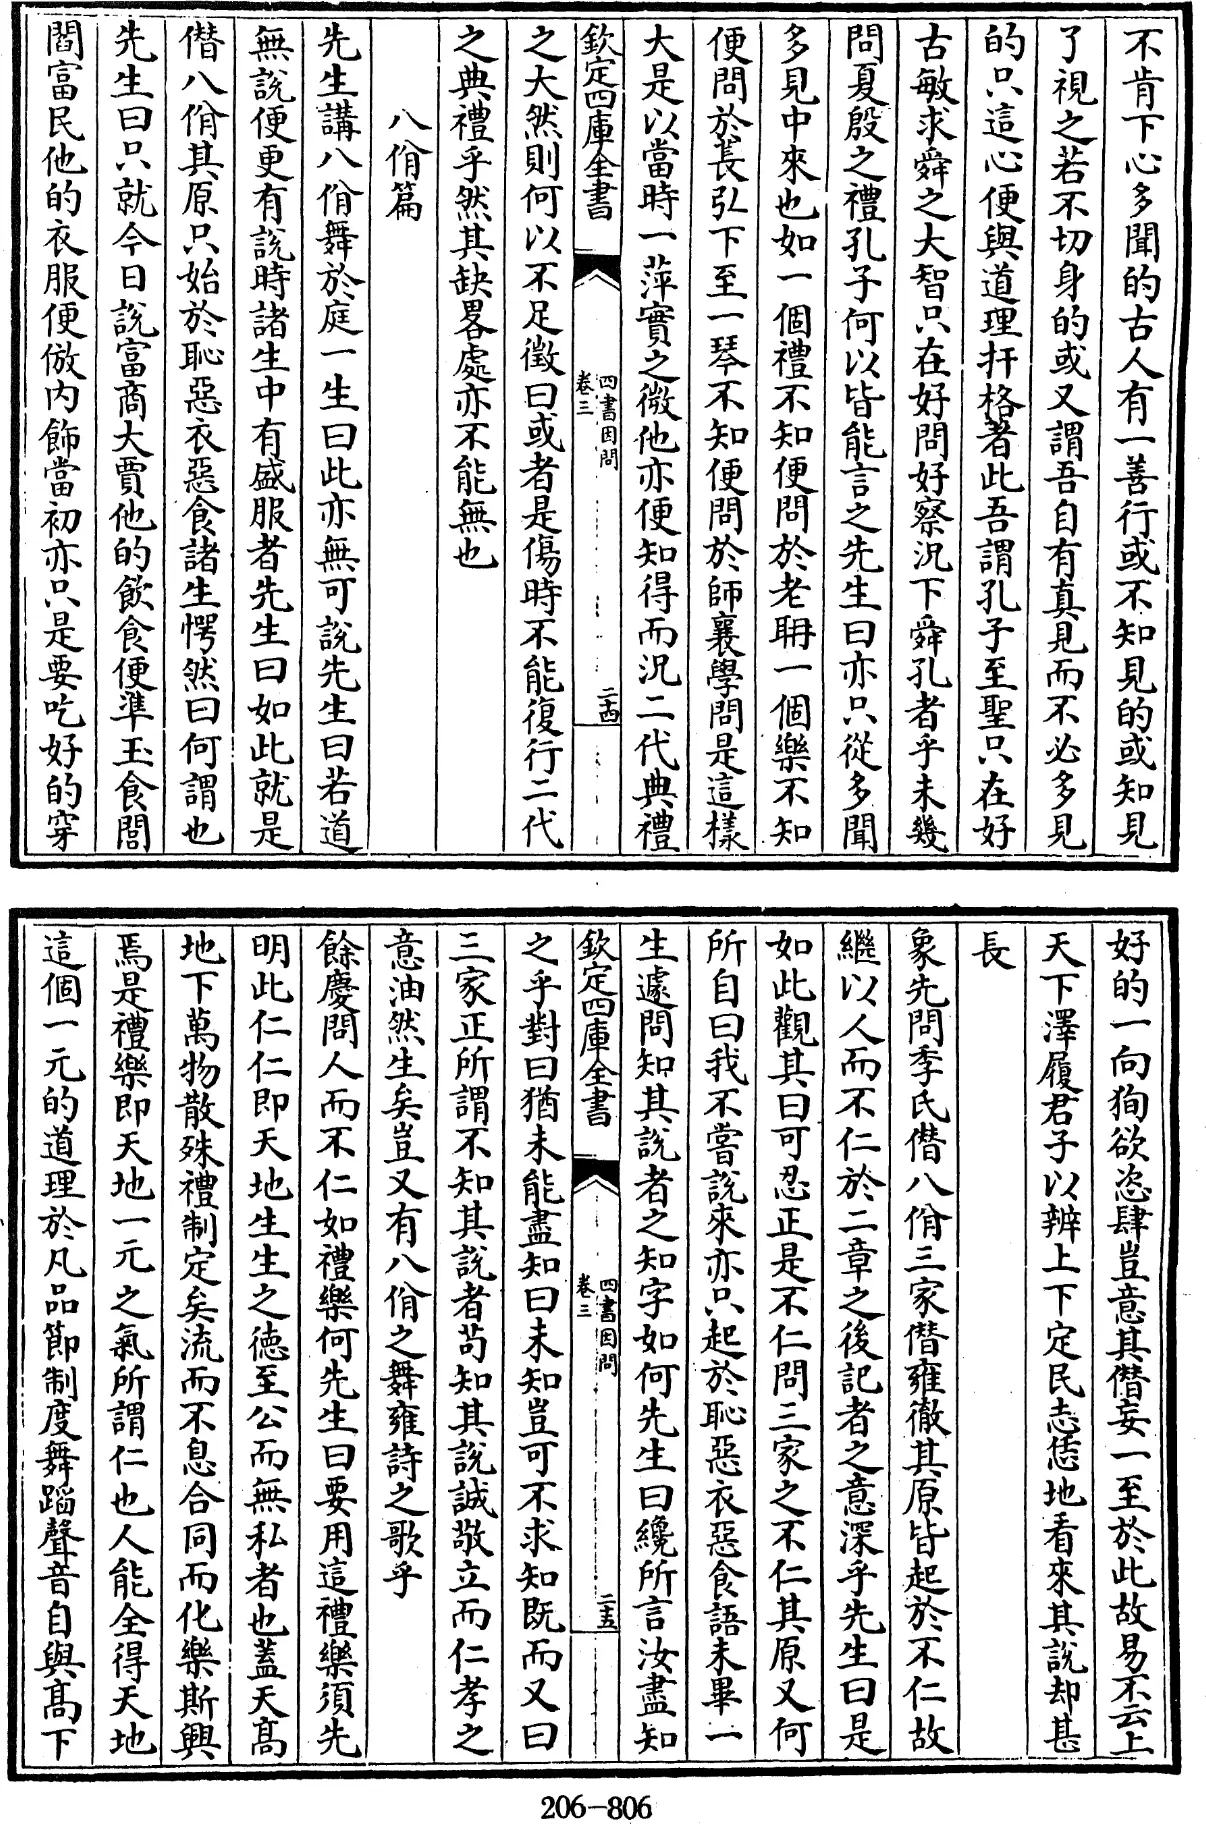 不肯下心多聞的古人有一善行或不知見的或知見
了視之若不切身的或又謂吾自有真見而不必多見
的只這心便與道理扞格著此吾謂孔子至聖只在好
古敏求舜之大智只在好問好察況下舜孔者乎未幾
問夏殷之禮孔子何以皆能言之先生曰亦只從多聞
多見中來也如一個禮不知便問於老聃一個樂不知
便問於萇弘下至一琴不知便問於師襄學問是這樣
大是以當時一萍實之微他亦便知得而況二代典禮
欽定四庫全書
四書因問
卷三
二十四
之大然則何以不足徵曰或者是傷時不能復行二代
之典禮乎然其缺畧處亦不能無也
八佾篇
先生講八佾舞於庭一生曰此亦無可說先生曰若道
無說便更有說時諸生中有盛服者先生曰如此就是
僭八佾其原只始於恥惡衣惡食諸生愕然曰何謂也
先生曰只就今日說富商大賈他的飲食便準玉食閭
閻富民他的衣服便倣內飾當初亦只是要吃好的穿
好的一向狥欲恣肆豈意其僭妄一至於此故易不云上
天下澤履君子以辨上下定民志恁地看來其說却甚
長
象先問季氏僭八佾三家僭雍徹其原皆起於不仁故
繼以人而不仁於二章之後記者之意深乎先生曰是
如此觀其曰可忍正是不仁問三家之不仁其原又何
所自曰我不嘗說來亦只起於恥惡衣惡食語未畢一
生遽問知其說者之知字如何先生曰纔所言汝盡知
欽定四庫全書
四書因問
卷三
二十五
之乎對曰猶未能盡知曰未知豈可不求知既而又曰
三家正所謂不知其說者茍知其說誠敬立而仁孝之
意油然生矣豈又有八佾之舞雍詩之歌乎
餘慶問人而不仁如禮樂何先生曰要用這禮樂須先
明此仁仁即天地生生之德至公而無私者也蓋天髙
地下萬物散殊禮制定矣流而不息合同而化樂斯興
焉是禮樂即天地一元之氣所謂仁也人能全得天地
這個一元的道理於凡品節制度舞蹈聲音自與髙下
206-806